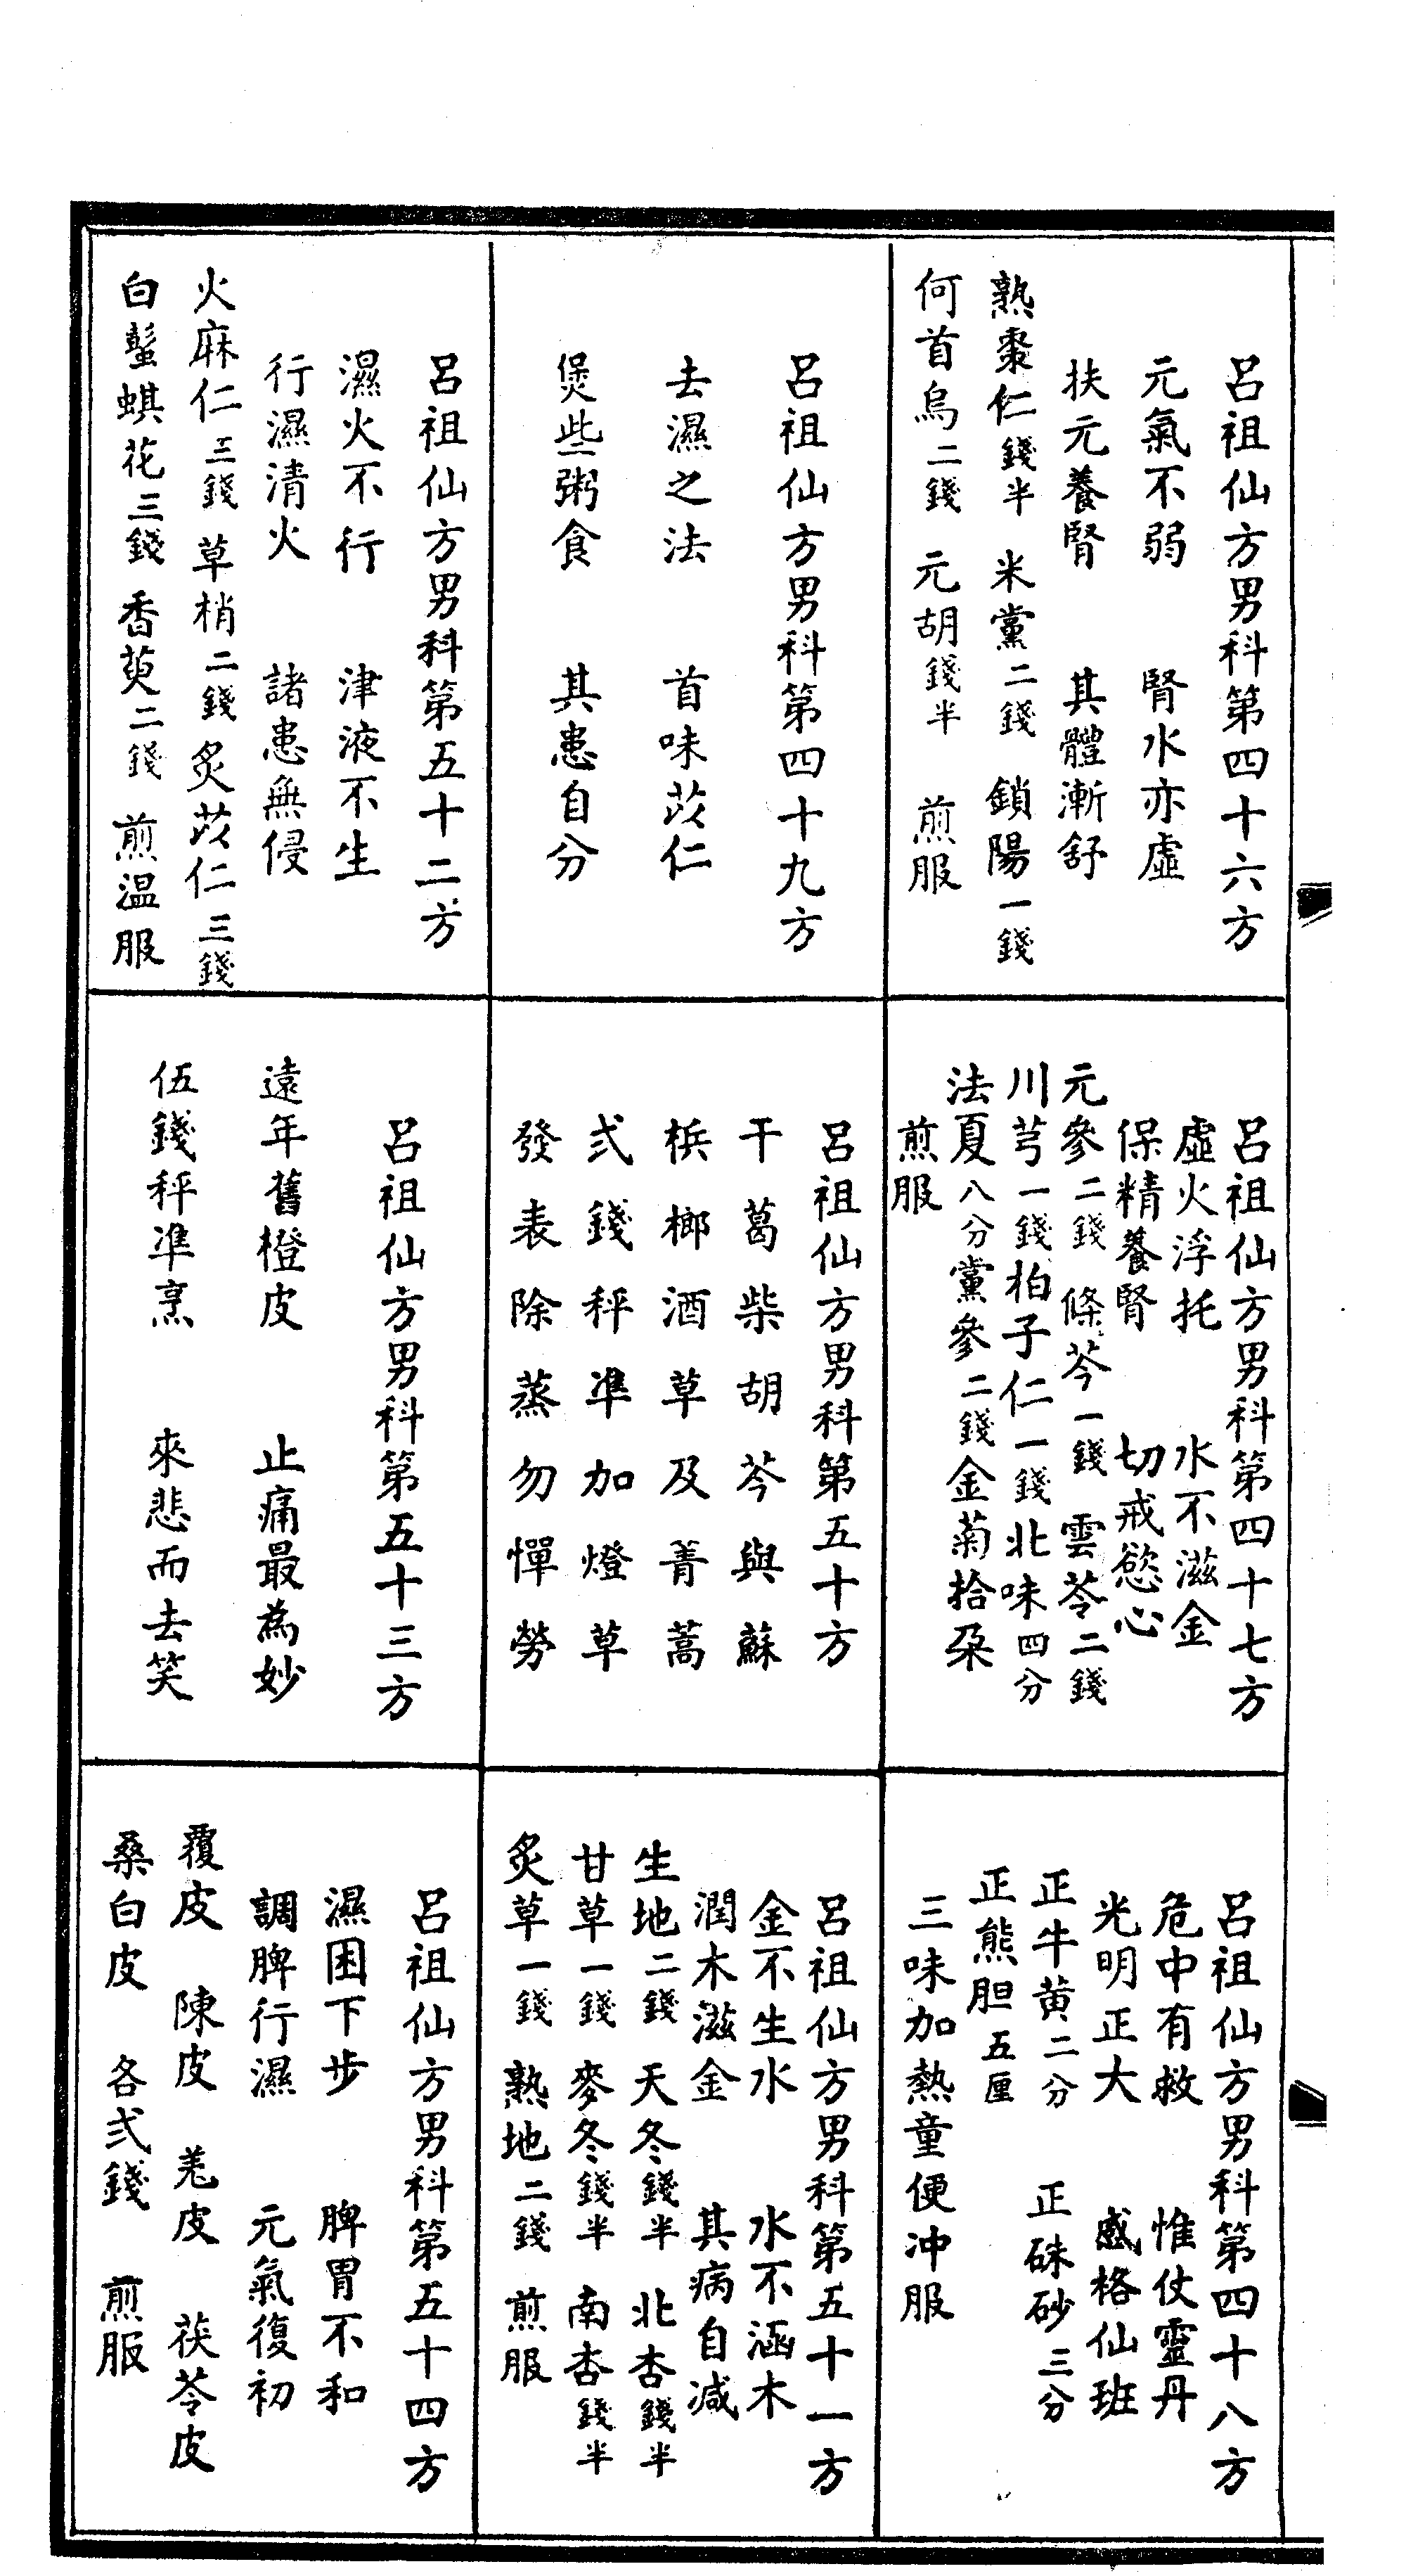 呂祖仙方男科第四十六方
元氣不弱 腎水亦虛
扶元養腎 其體漸舒
熟棗仁錢半 米黨二錢 鎖陽一錢
何首烏二錢 元胡錢半 煎服
呂祖仙方男科第四十七方
虛火浮托 水不滋金
保精養腎 切戒慾心
元參二錢 條芩一錢 雲苓二錢
川芎一錢柏子仁一錢北味四分
法夏八分黨參二錢金菊拾朶
煎服
呂祖仙方男科第四十八方
危中有救 惟仗靈丹
光明正大 感格仙班
正牛黄二分 正硃砂三分
正熊胆五厘
三味加熱童便冲服
呂祖仙方男科第四十九方
去濕之法 首味苡仁
煲些粥食 其患自分
呂祖仙方男科第五十方
干葛柴胡芩與蘇
梹榔酒草及菁蒿
弍錢秤準加燈草
發表除蒸勿憚勞
呂祖仙方男科第五十一方
金不生水 水不涵木
潤木滋金 其病自减
生地二錢 天冬錢半 北杏錢半
甘草一錢 麥冬錢半 南杏錢半
炙草一錢 熟地二錢 煎服
呂祖仙方男科第五十二方
濕火不行 津液不生
行濕清火 諸患無侵
火麻仁三錢 草梢二錢 炙苡仁三錢
白蟚蜞花三錢 香萸二錢 煎温服
呂祖仙方男科第五十三方
遠年舊橙皮 止痛最為妙
伍錢秤準烹 來悲而去笑
呂祖仙方男科第五十四方
濕困下步 脾胃不和
調脾行濕 元氣復初
覆皮 陳皮 羌皮 茯苓皮
桑白皮 各弍錢 煎服